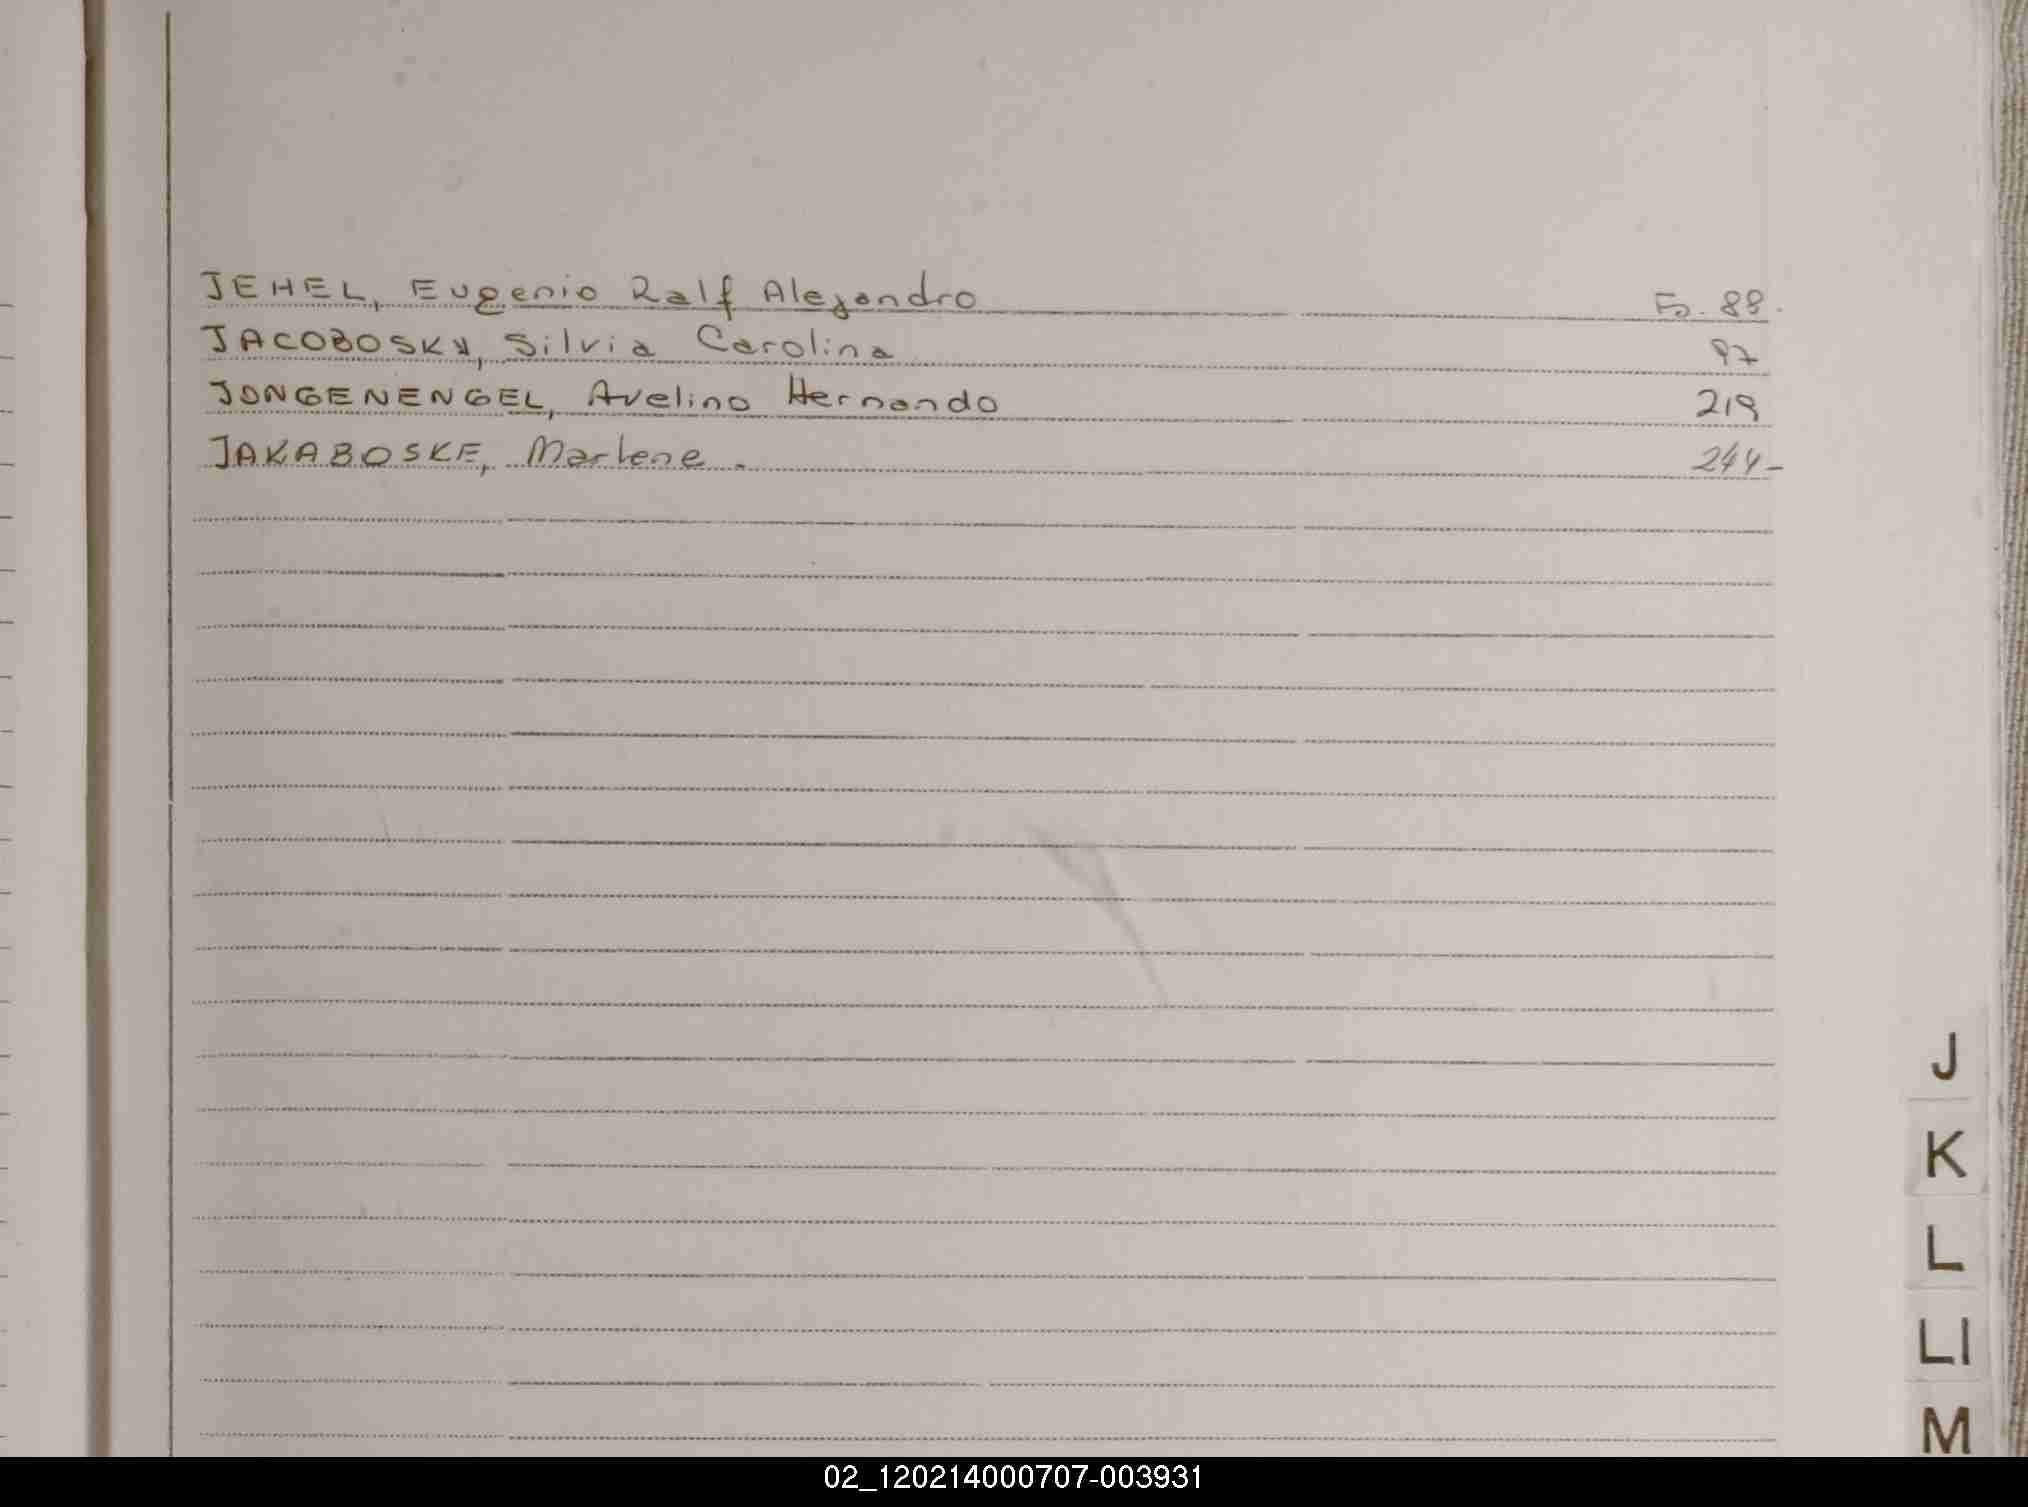 JEHEL, Eugenio Ralf Alejandro Fo. 88.
JACOBOSKY, Silvia Carolina 97
JONGENENGEL, Avelino Hernando 219
JAKABOSKE, Marlene. 244-
J
K
L
Ll
M
02_120214000707-003931